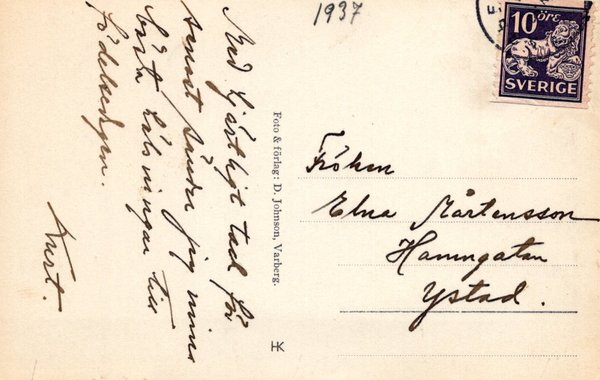 1937
10 ÖRE
SVERIGE
Med hjärtligt tack för
senast sänder jag mina
bästa hälsningar till
födelsedagen.
Kurt.
Foto & förlag: D. Johnson, Varberg.
HK
Fröken
Elna Mårtensson
Hamngatan
Ystad.